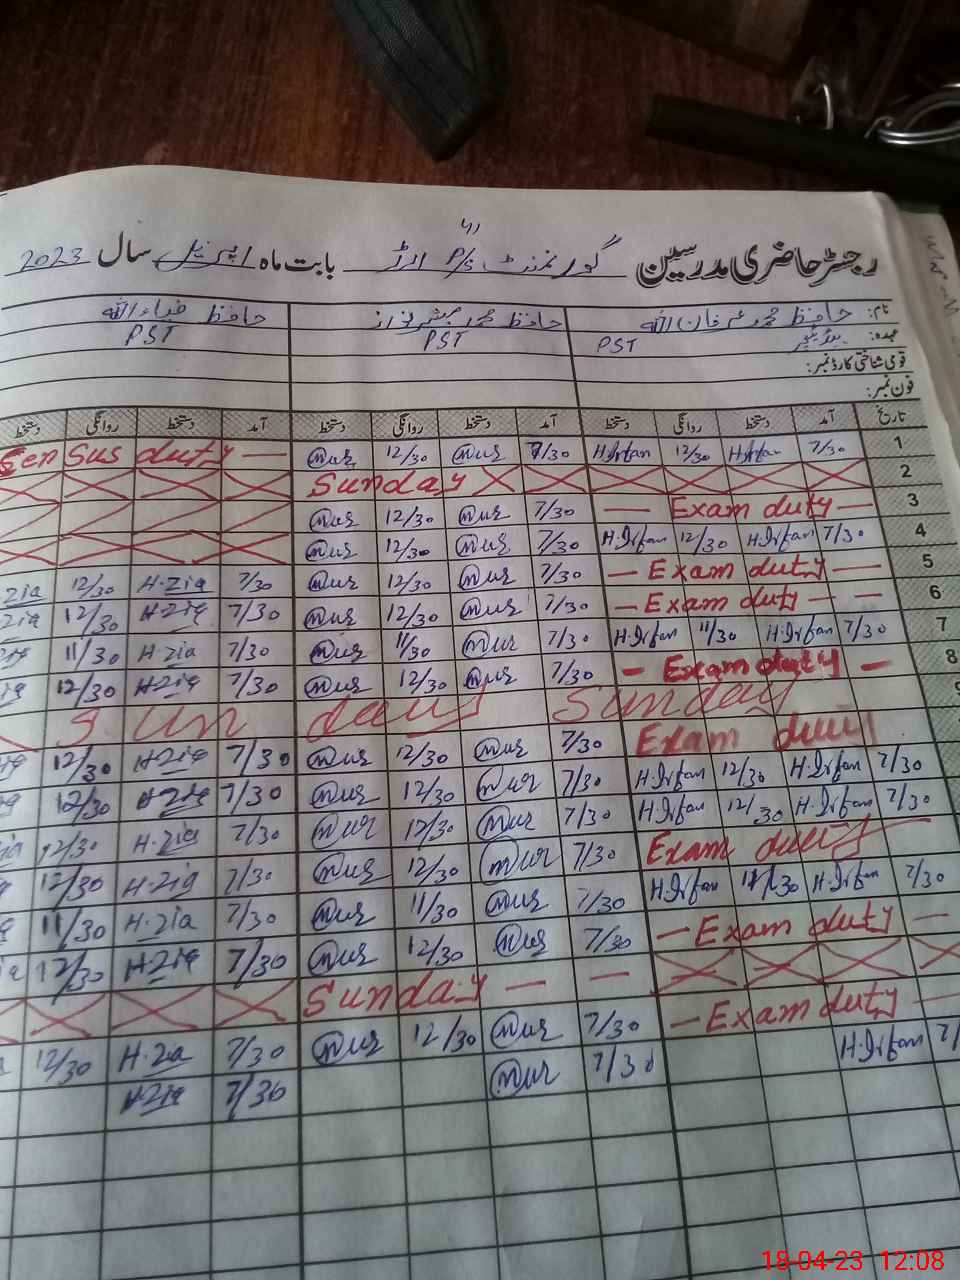 رجسٹر حاضری مدرسین گورنمنٹ P/S بابت ماہ اپریل سال 2023
نام: حافظ محمد عرفان اللہ حافظ محمد مبشر نواز حافظ ضیاء اللہ
عہدہ: PST PST PST
قومی شناختی کارڈ نمبر:
فون نمبر:
تاریخ آمد دستخط روانگی دستخط آمد دستخط روانگی دستخط آمد دستخط روانگی دستخط
1 7/30 H.Irfan 12/30 H.Irfan 7/30 12/30 Census duty —
2 Sunday
3 — Exam duty — 7/30 12/30
4 7/30 H.Irfan 12/30 H.Irfan 7/30 12/30
5 — Exam duty — 7/30 12/30 7/30 H.Zia 12/30 Zia
6 — Exam duty — 7/30 12/30 7/30 H.Zia 12/30 Zia
7 7/30 H.Irfan 11/30 H.Irfan 7/30 11/30 7/30 H.Zia 11/30
8 — Exam duty — 7/30 12/30 7/30 H.Zia 12/30
9 Sunday Sunday
Exam duty 7/30 12/30 7/30 H.Zia 12/30
7/30 H.Irfan 12/30 H.Irfan 7/30 12/30 7/30 H.Zia 12/30
7/30 H.Irfan 12/30 H.Irfan 7/30 12/30 7/30 H.Zia 12/30
Exam duty 7/30 12/30 7/30 H.Zia 12/30
7/30 H.Irfan 11/30 H.Irfan 7/30 11/30 7/30 H.Zia 11/30
— Exam duty — 7/30 12/30 7/30 H.Zia 12/30
Sunday — — —
— Exam duty — 7/30 12/30 7/30 H.Zia 12/30
H.Irfan 7/30 7/30 H.Zia
18-04-23 12:08